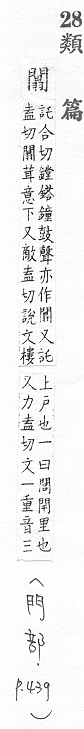 28 類篇
闒
託合切鏜鎝鐘鼓聲亦作闒又託
盍切闒茸意下又敵盍切說文樓
上戶也一曰開里也
又力盍切文一重音三
(門部. P.439)